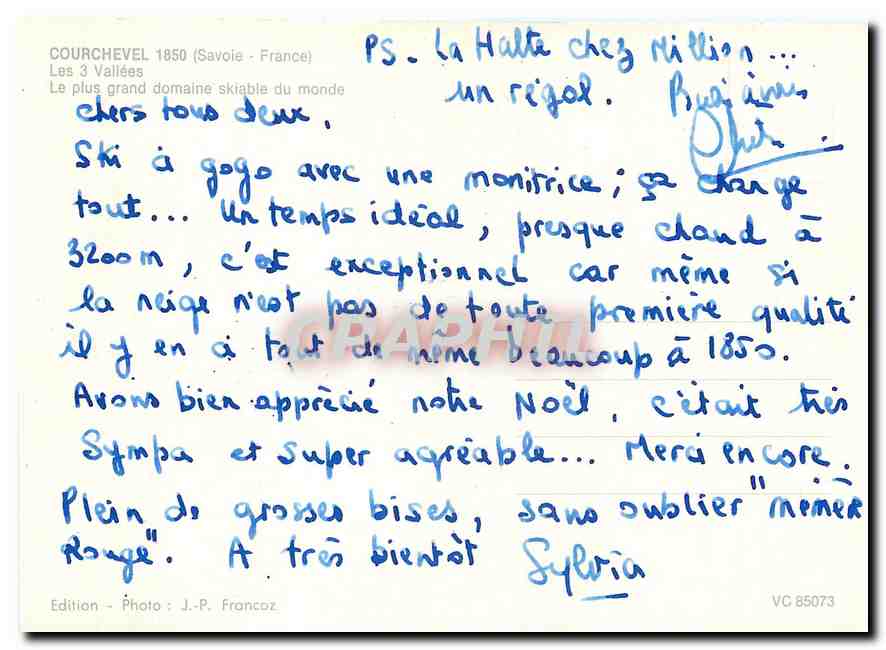 COURCHEVEL 1850 (Savoie - France)
Les 3 Vallées
Le plus grand domaine skiable du monde
PS. La Halte chez Million...
un régal.
chers tous deux,
Ski à gogo avec une monitrice ; ça change
tout... Un temps idéal, presque chaud à
3200m, c'est exceptionnel car même si
la neige n'est pas de toute première qualité
il y en a tout de même beaucoup à 1850.
Avons bien apprécié notre Noël, c'était très
Sympa et super agréable... Merci encore.
Plein de grosses bises, sans oublier "mémère
Rouge". A très bientôt
Sylvia
Edition - Photo : J.-P. Francoz
VC 85073
CPAPHIL